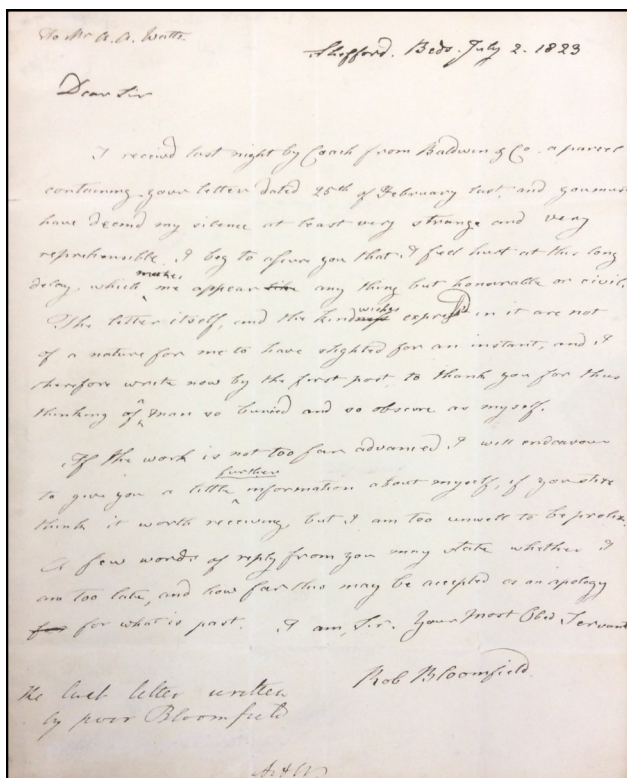 To Mr A. A. Watts.
Shefford. Beds. July 2. 1823
Dear Sir
I receivd last night by Coach from Baldwin & Co. a parcel
containing your letter dated 25th of February last, and you must
have deemd my silence at least very strange and very
reprehensible. I beg to assure you that I feel hurt at this long
delay, which makes me appear like any thing but honourable or civil.
The letter itself, and the kind wishes expressd in it are not
of a nature for me to have slighted for an instant, and I
therefore write now by the first post to thank you for thus
thinking of a man so buried and so obscure as myself.
If the work is not too far advanced I will endeavour
to give you a little further information about myself, if you still
think it worth receiving, but I am too unwell to be prolix.
A few words of reply from you may state whether I
am too late, and how far this may be accepted as an apology
for for what is past. I am, Sir. Your Most Obed. Servant
Rob Bloomfield.
The last letter written
by poor Bloomfield